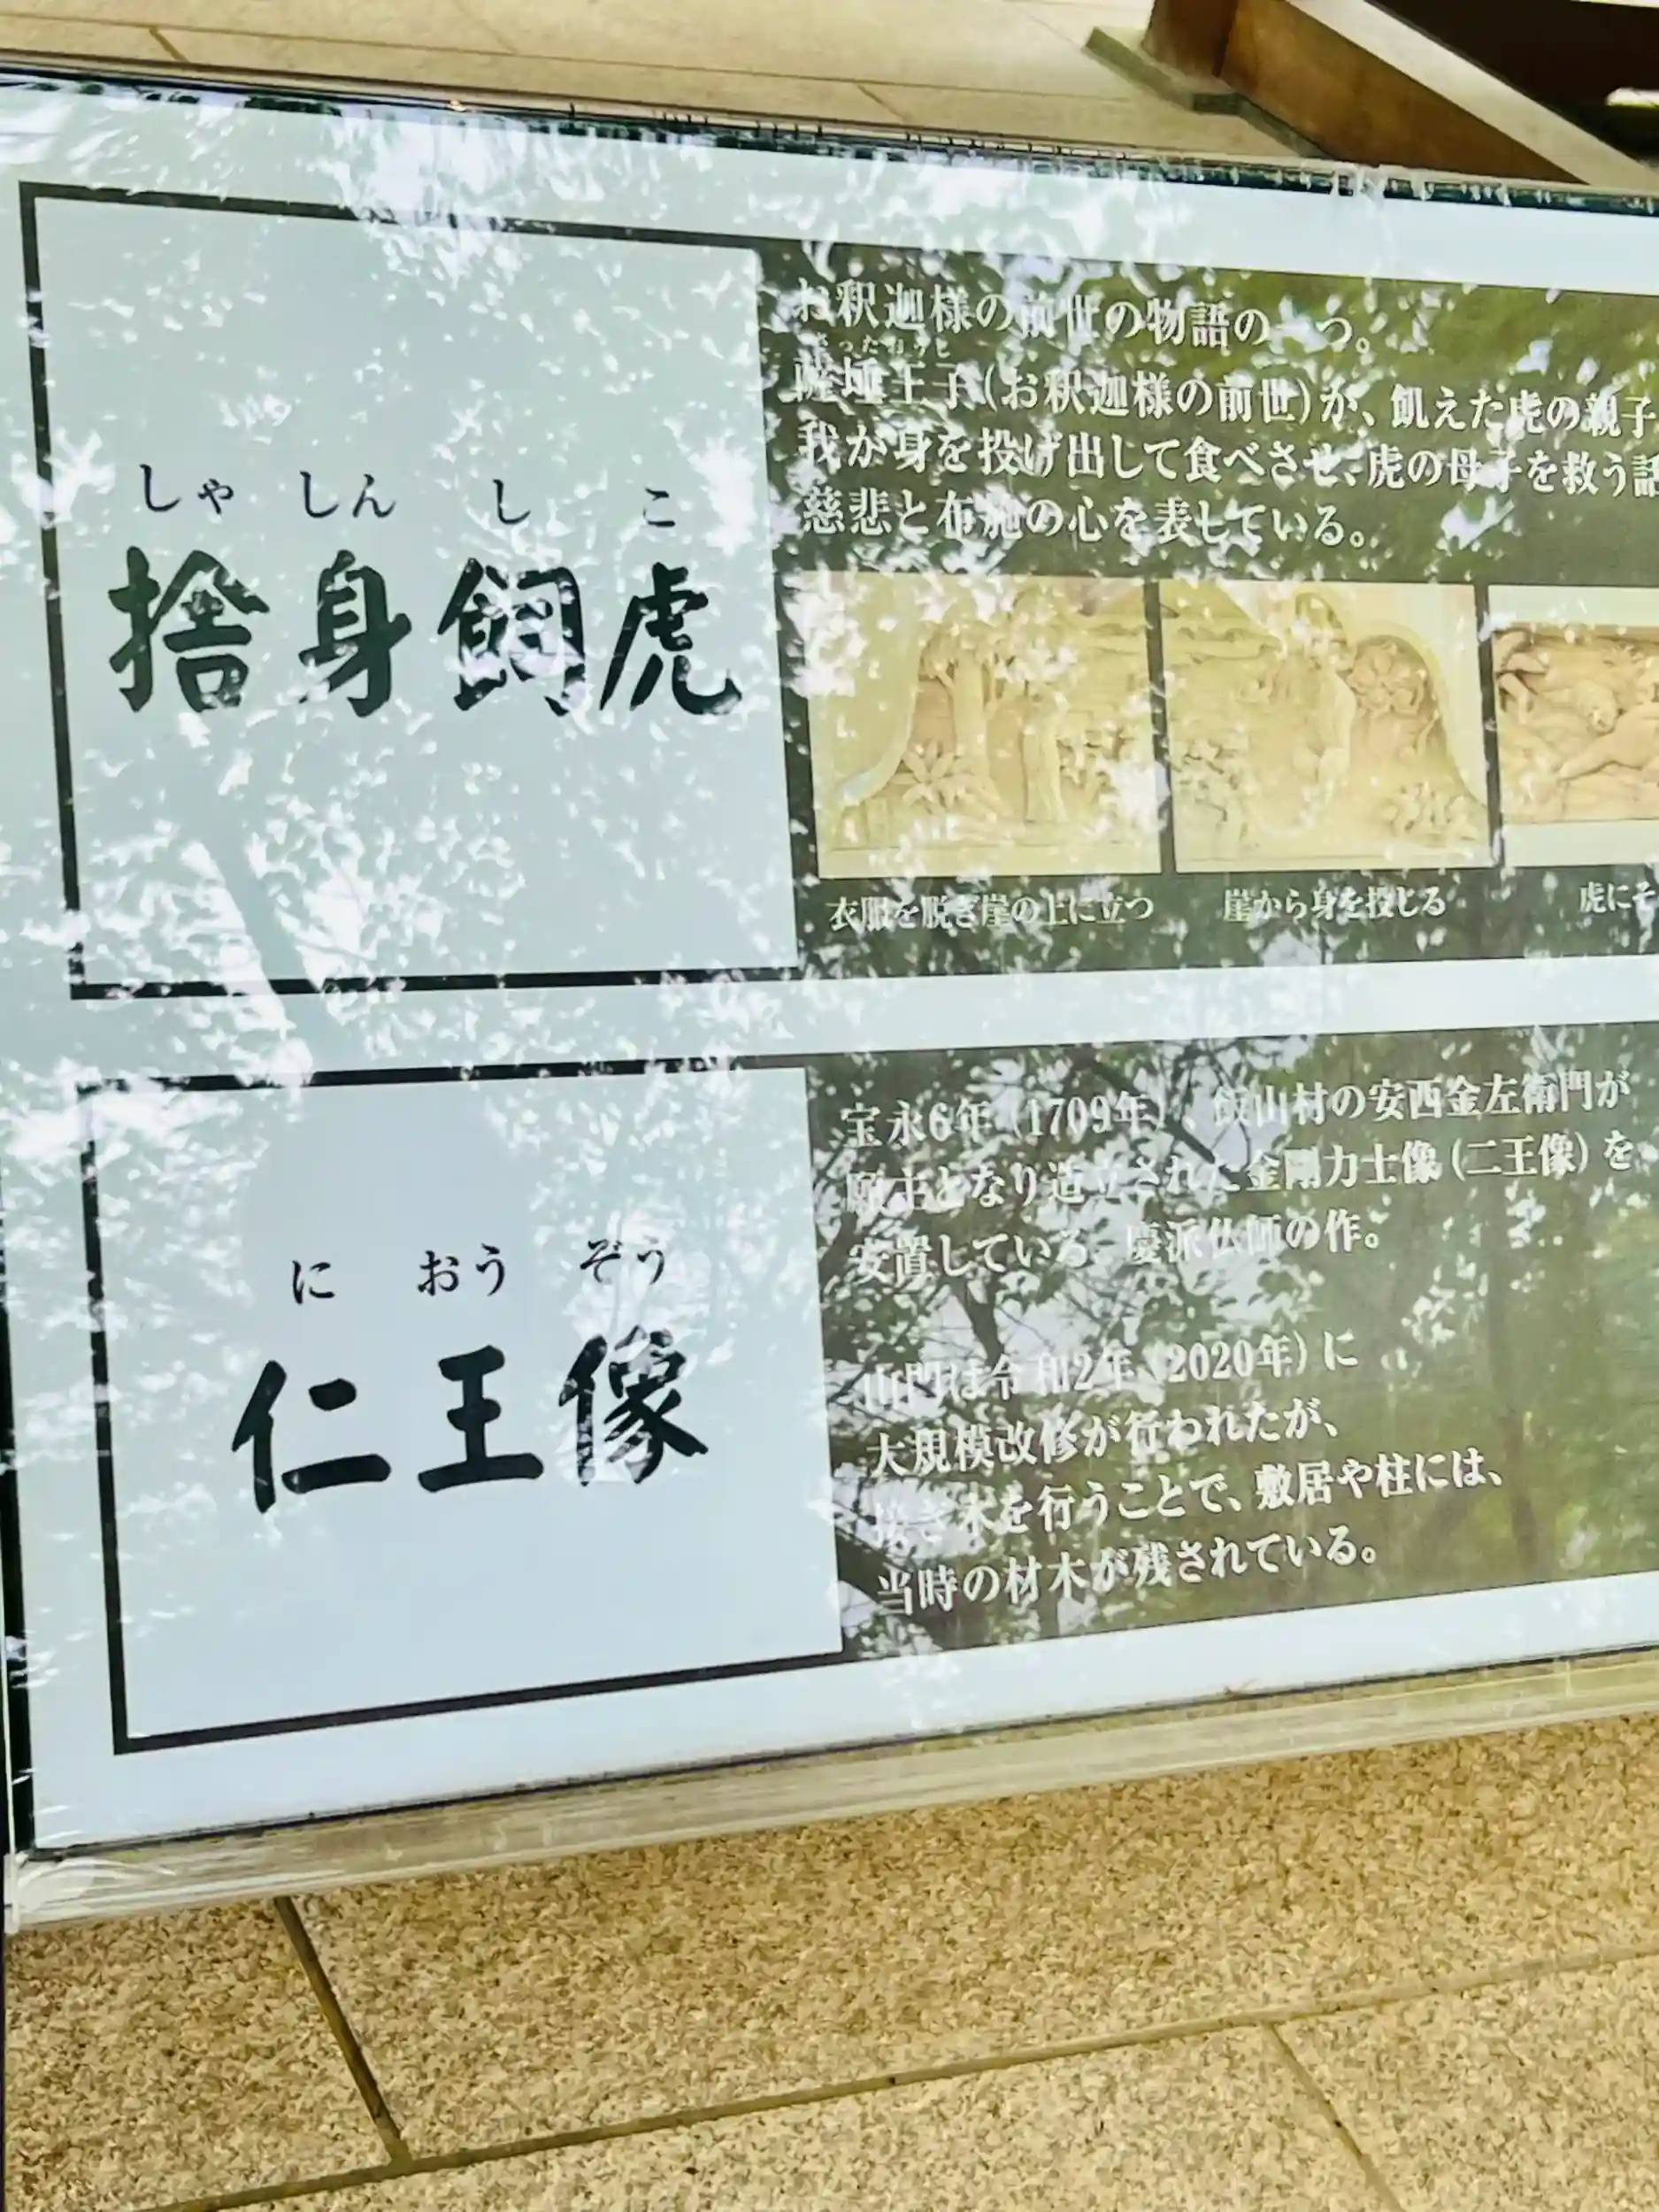 しゃ しん し こ
捨身飼虎
お釈迦様の前世の物語の一つ。
さったおうじ
薩埵王子(お釈迦様の前世)が、飢えた虎の親子
我が身を投げ出して食べさせ、虎の母子を救う話
慈悲と布施の心を表している。
衣服を脱ぎ崖の上に立つ
崖から身を投じる
虎にそ
に おう ぞう
仁王像
宝永6年(1709年)、飯山村の安西金左衛門が
願主となり造立された金剛力士像(二王像)を
安置している。慶派仏師の作。
山門は令和2年(2020年)に
大規模改修が行われたが、
接ぎ木を行うことで、敷居や柱には、
当時の材木が残されている。